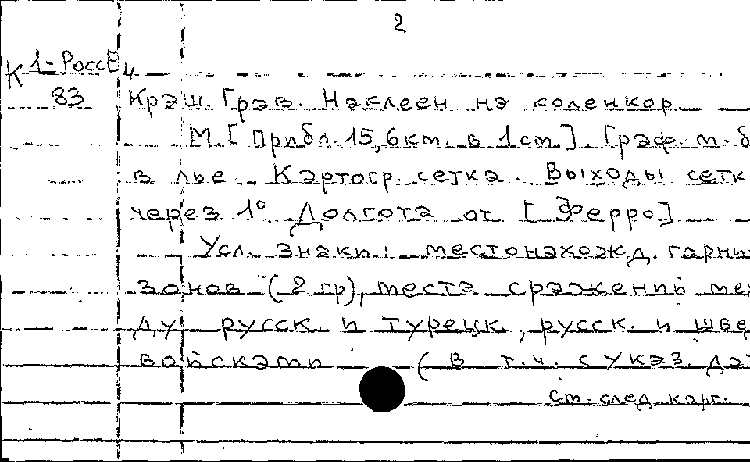 2
К 1-РоссЕ/4
83 Крэш. Грав. Наклеен на коленкор.
М. [прибл. 15,6км. в 1см]. Граф. м-б
в лье. Картогр. сетка. Выходы сетк
через 1° Долгота от [Ферро]
Усл. знаки: местонахожд. гарни
зонов (2 гр), места сражений меж
ду русск. и турецк., русск. и шве
войсками (в т.ч. с указ. да
См. след. карт.